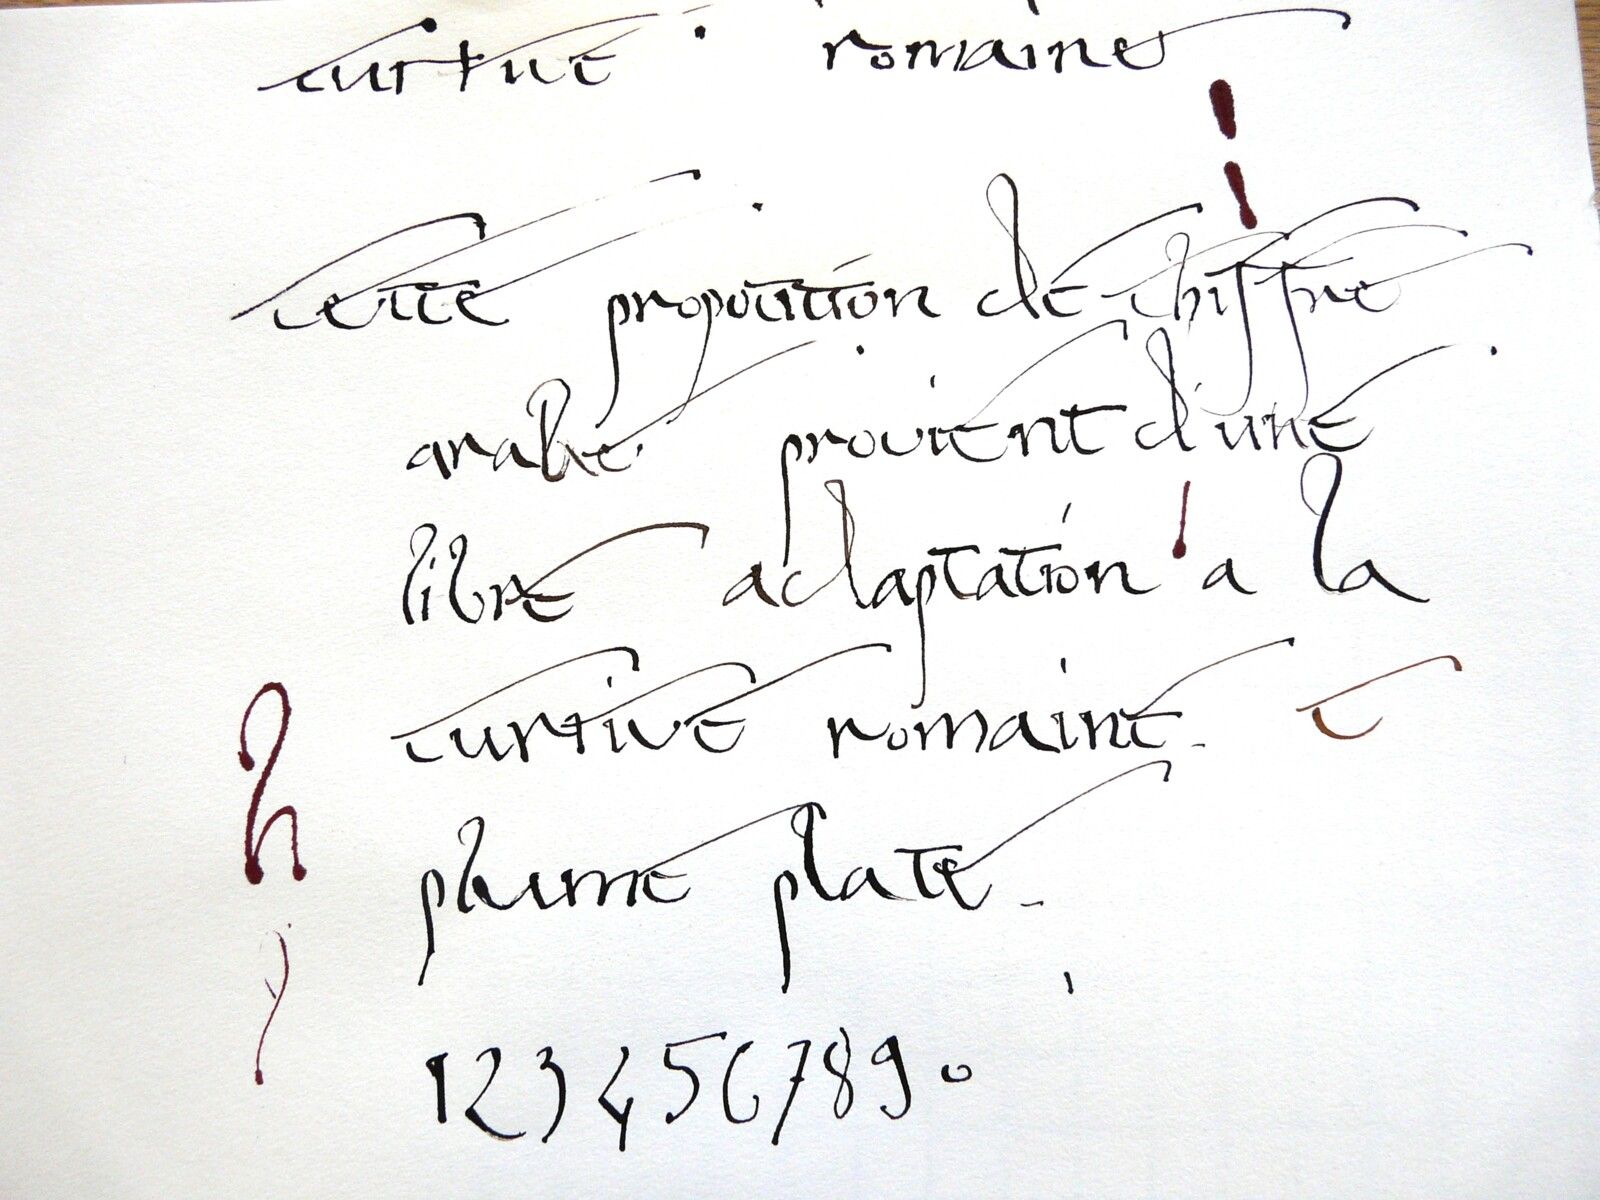 cursive romaine
cette proposition de chiffre
arabe provient d'une
libre adaptation a la
cursive romaine. c
plume plate.
1234567890